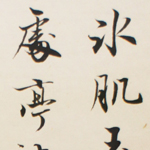 冰肌玉
處亭